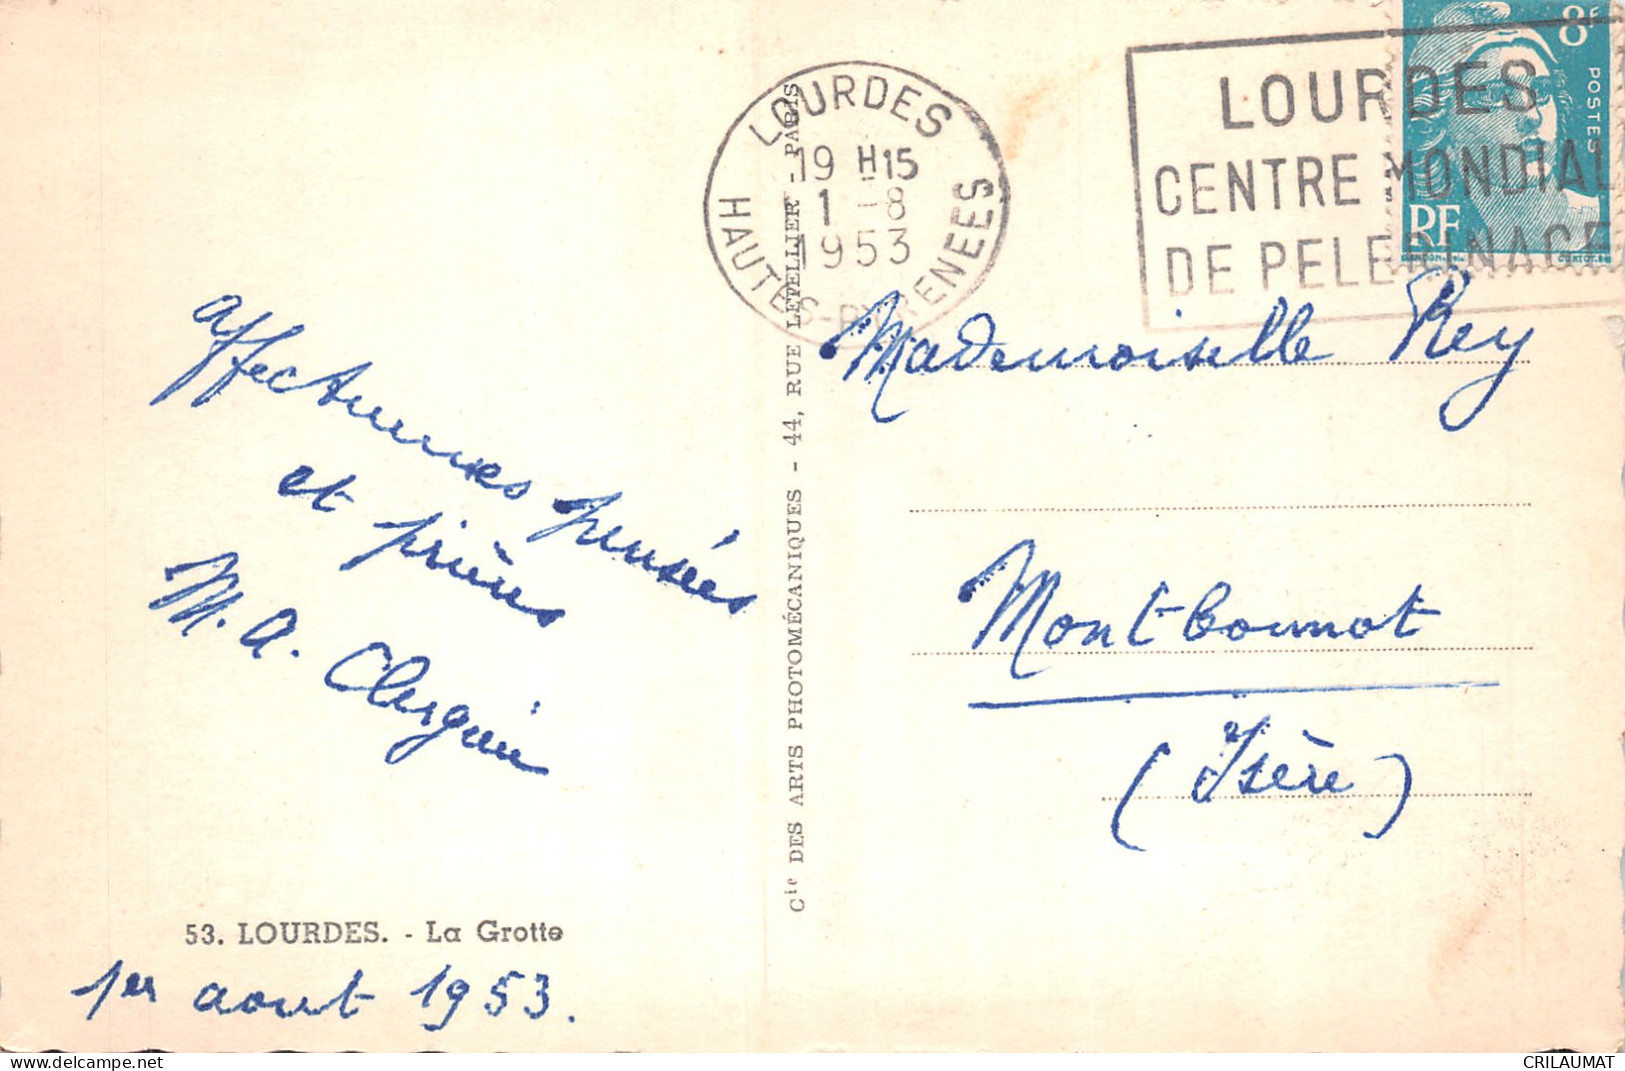 LOURDES
19 H15
1 -8
1953
HAUTES-PYRENEES
LOURDES
CENTRE MONDIAL
DE PELERINAGE
8F
POSTES
RF
GANDON
CORTOT
affectueuses pensées
et prières
M. A.
Mademoiselle Rey
Montbonnot
(Isère)
Cie DES ARTS PHOTOMÉCANIQUES - 44, RUE LETELLIER - PARIS
53. LOURDES. - La Grotte
1er aout 1953.
CRILAUMAT